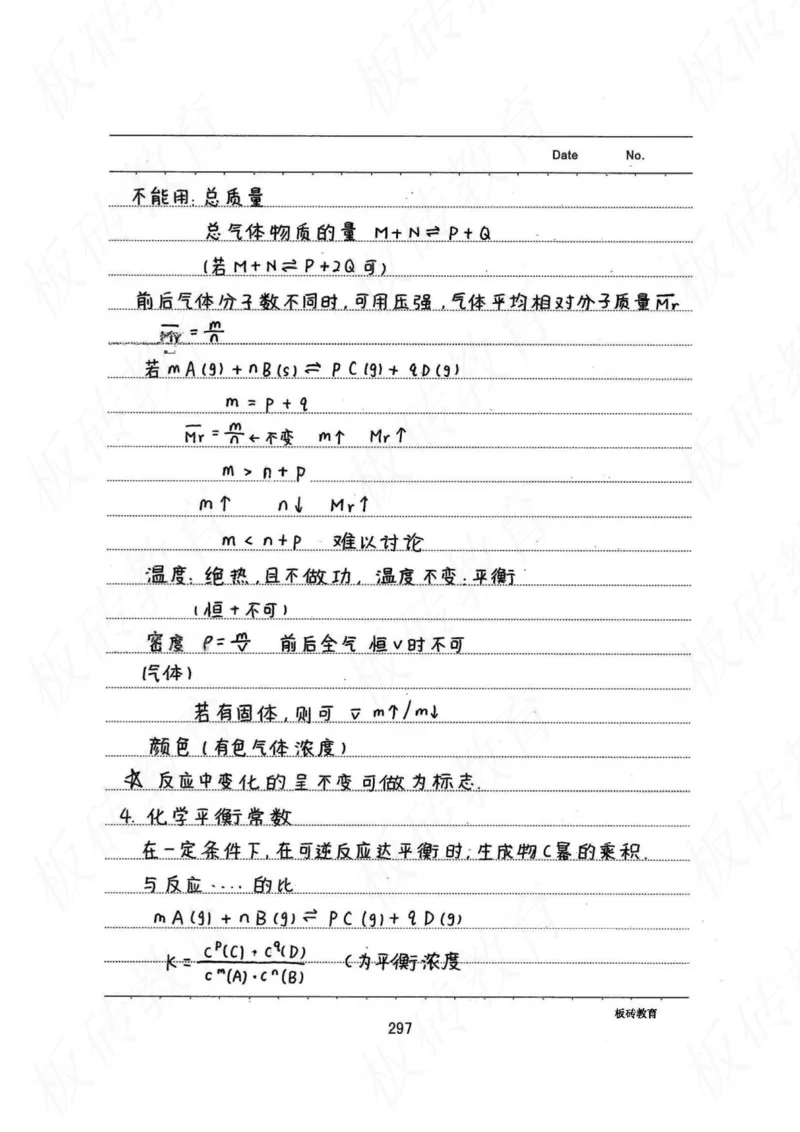 Date No.
不能用: 总质量
总气体物质的量 M+N⇌P+Q
(若M+N⇌P+2Q可)
前后气体分子数不同时,可用压强,气体平均相对分子质量M̅r̅
M̅r̅ = m/n
若mA(g)+nB(s)⇌PC(g)+qD(g)
m = p + q
M̅r̅ = m/n ←不变 m↑ Mr↑
m > n + p
m↑ n↓ Mr↑
m < n + p 难以讨论
温度: 绝热,且不做功, 温度不变:平衡
(恒+不可)
密度 ρ=m/V 前后全气 恒V时不可
(气体)
若有固体,则可 v̅ m↑/m↓
颜色(有色气体浓度)
☆ 反应中变化的呈不变可做为标志.
4. 化学平衡常数
在一定条件下,在可逆反应达平衡时;生成物C幂的乘积.
与反应····的比
mA(g)+nB(g)⇌PC(g)+qD(g)
K = c^p(C)·c^q(D) / c^m(A)·c^n(B) C为平衡浓度
板砖教育
297